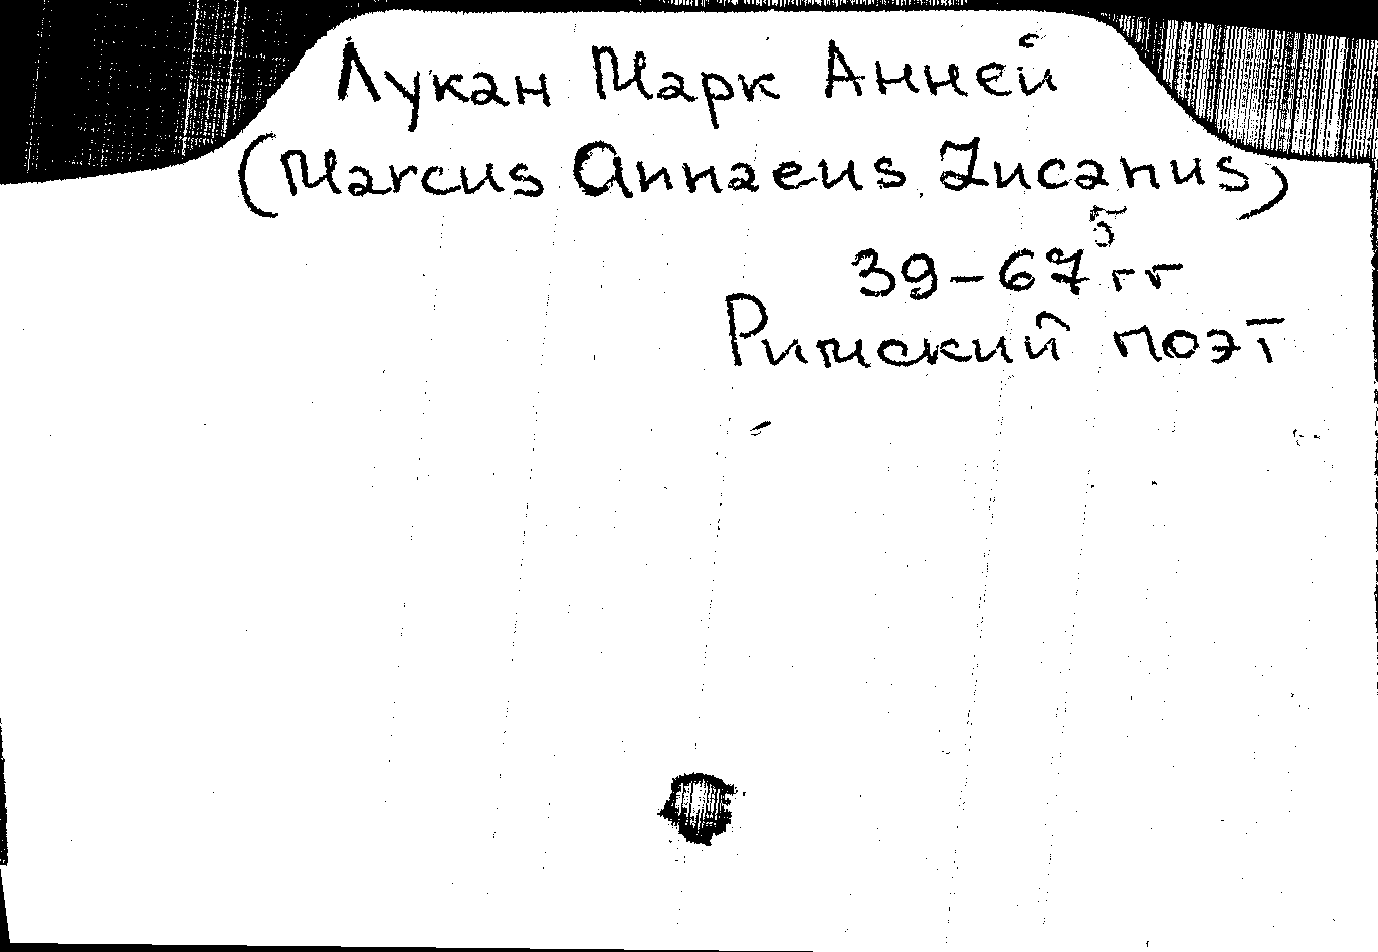 Лукан Марк Анней
(Marcus Annaeus Lucanus)
39-675 гг
Римский поэт